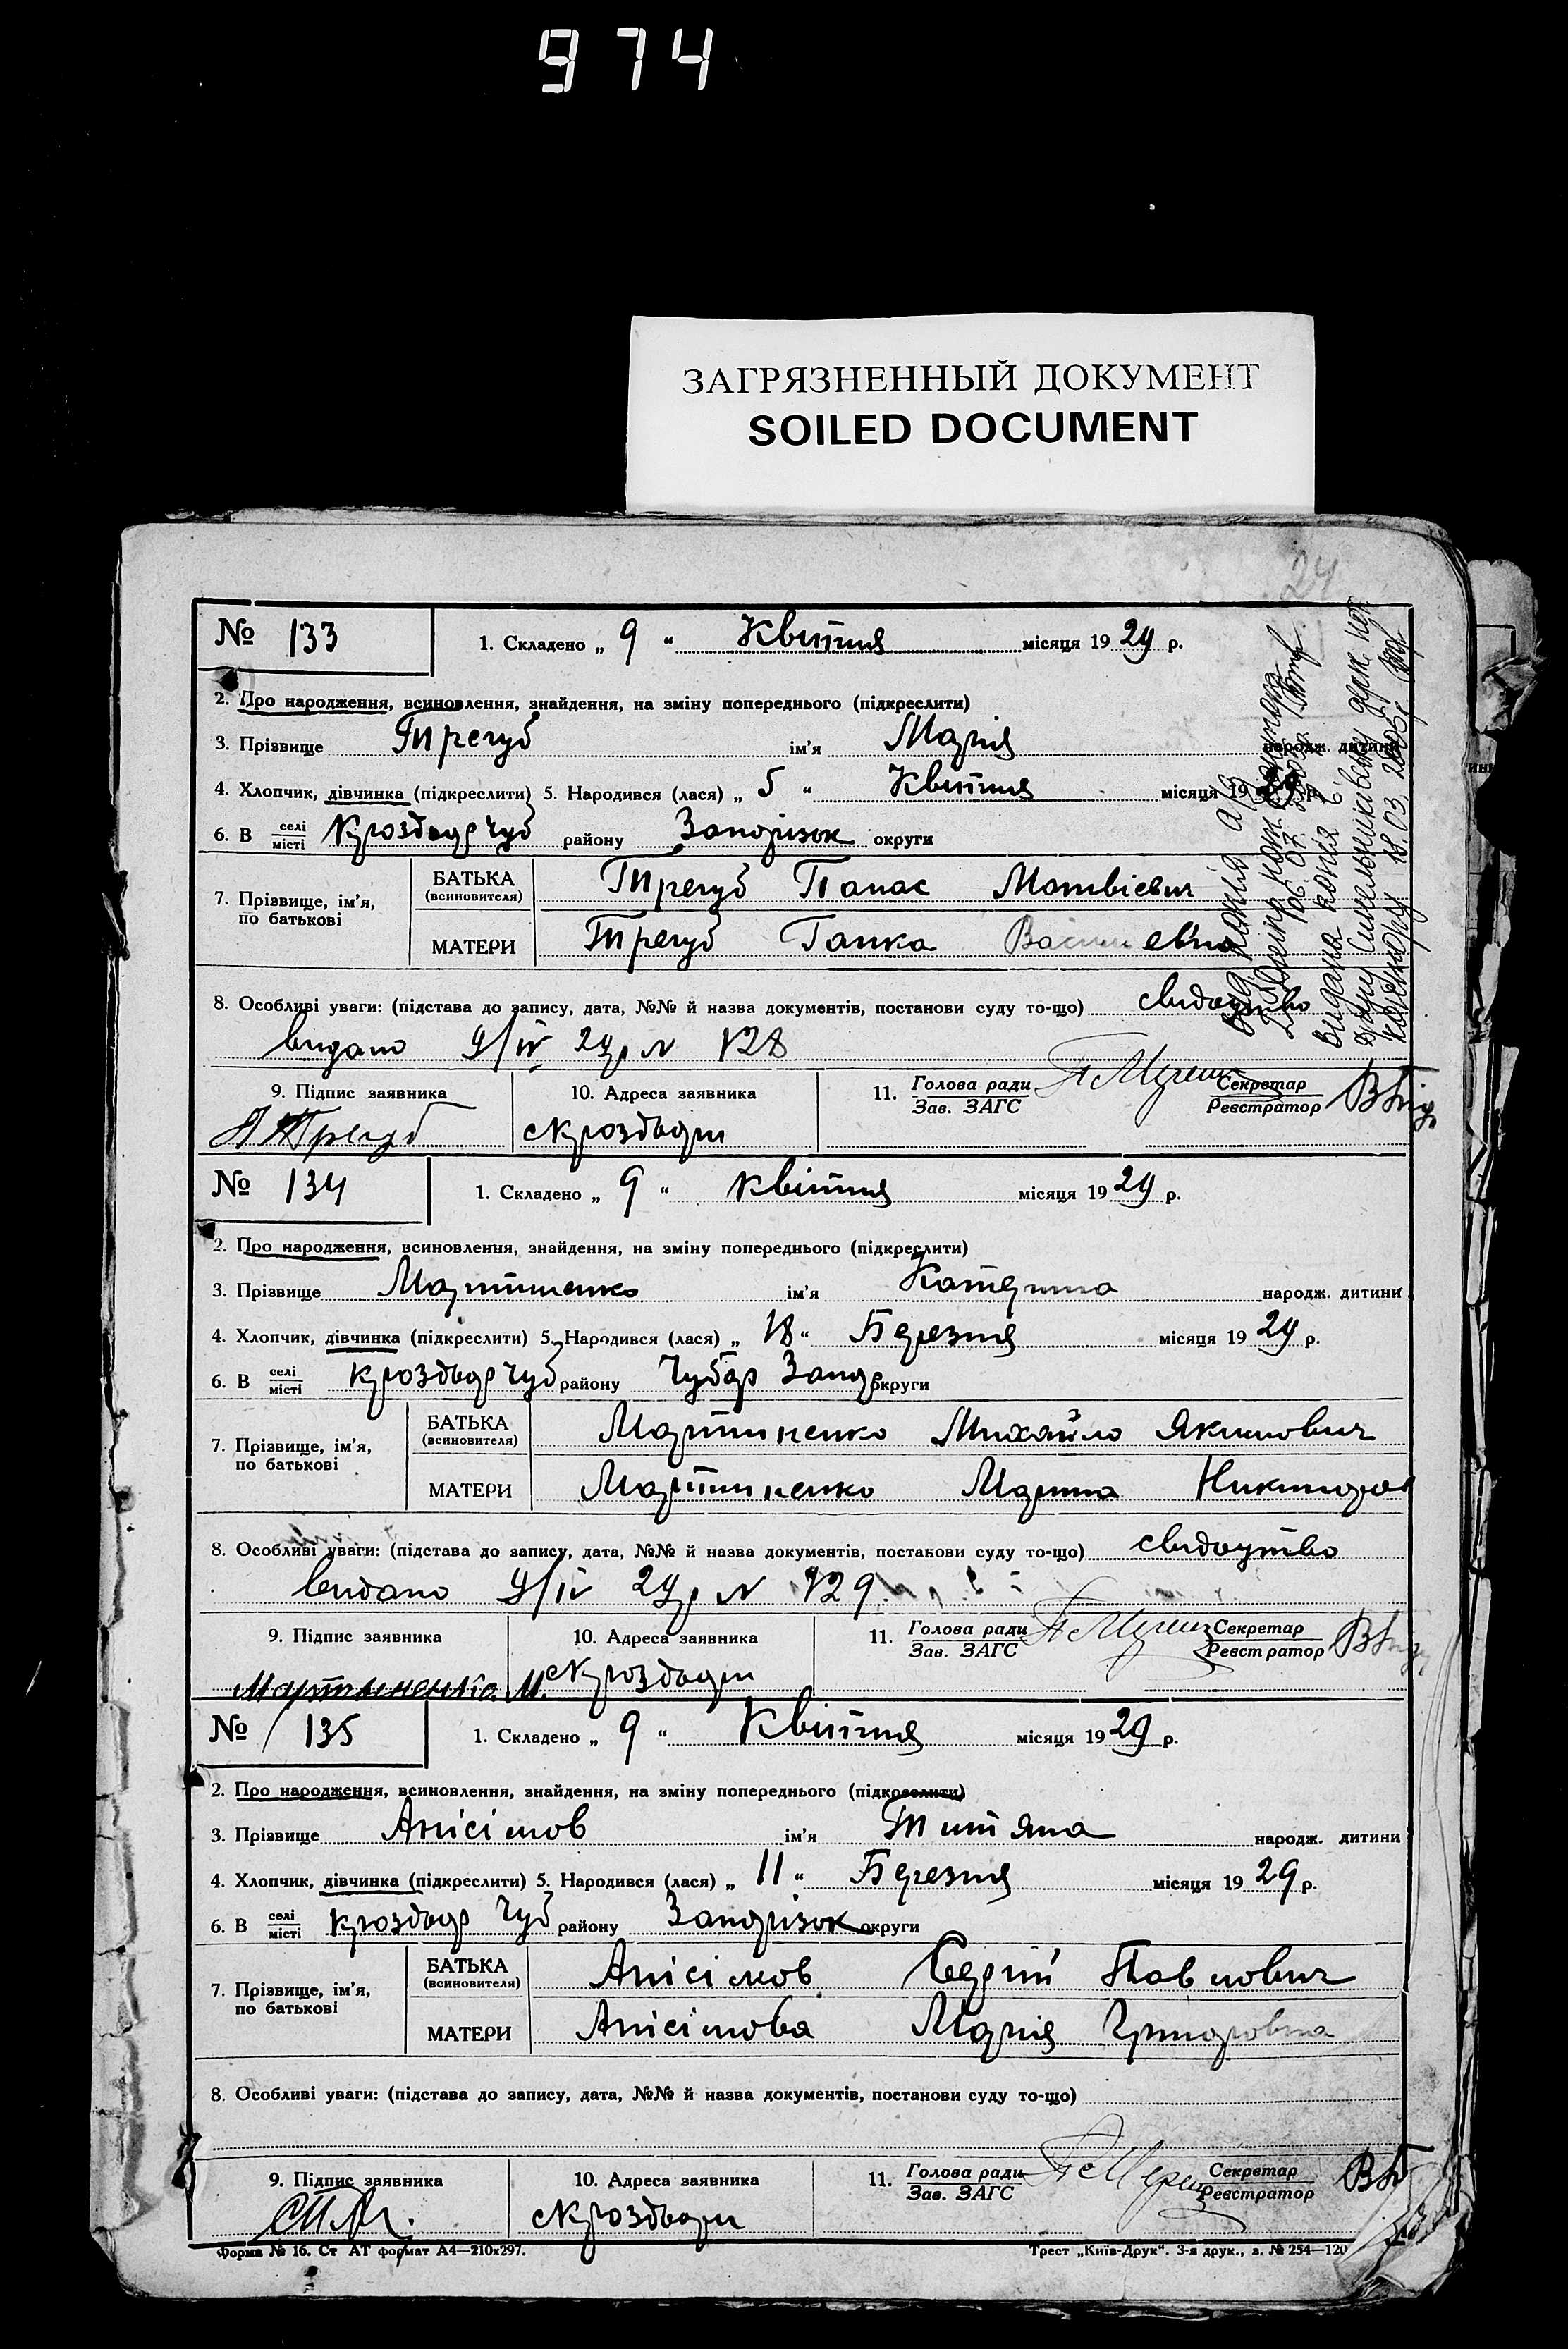 974
ЗАГРЯЗНЕННЫЙ ДОКУМЕНТ
SOILED DOCUMENT
24
№ 133 1. Складено „ 9 “ Квітня місяця 1929 р.
2. Про народження, всиновлення, знайдення, на зміну попереднього (підкреслити)
3. Прізвище Трегуб ім’я Марія народж. дитини
4. Хлопчик, дівчинка (підкреслити) 5. Народився (лася) „ 5 “ Квітня місяця 1929 р.
6. В селі/місті Кроздвор Чуб району Запорізьк округи
7. Прізвище, ім’я, по батькові
БАТЬКА (всиновителя) Трегуб Панас Матвієвич
МАТЕРИ Трегуб Ганка Васильевна
8. Особливі уваги: (підстава до запису, дата, №№ й назва документів, постанови суду то-що) свидоцтво
видано 9/IV 29р N 128
9. Підпис заявника 10. Адреса заявника 11. Голова ради/Зав. ЗАГС Секретар/Реєстратор
Трегуб с Кроздвори
№ 134 1. Складено „ 9 “ квітня місяця 1929 р.
2. Про народження, всиновлення, знайдення, на зміну попереднього (підкреслити)
3. Прізвище Мартиненко ім’я Катерина народж. дитини
4. Хлопчик, дівчинка (підкреслити) 5. Народився (лася) „ 18 “ Березня місяця 1929 р.
6. В селі/місті Кроздвор Чуб району Чубар Запор округи
7. Прізвище, ім’я, по батькові
БАТЬКА (всиновителя) Мартиненко Михайло Якимович
МАТЕРИ Мартиненко Марина
8. Особливі уваги: (підстава до запису, дата, №№ й назва документів, постанови суду то-що) свидоцтво
видано 9/IV 29р N 129
9. Підпис заявника 10. Адреса заявника 11. Голова ради/Зав. ЗАГС Секретар/Реєстратор
Мартыненко М. с Кроздвори
№ 135 1. Складено „ 9 “ Квітня місяця 1929 р.
2. Про народження, всиновлення, знайдення, на зміну попереднього (підкреслити)
3. Прізвище Анісімов ім’я Титяна народж. дитини
4. Хлопчик, дівчинка (підкреслити) 5. Народився (лася) „ 11 “ Березня місяця 1929 р.
6. В селі/місті Кроздвор Чуб району Запорізок округи
7. Прізвище, ім’я, по батькові
БАТЬКА (всиновителя) Анісімов Сергій Павлович
МАТЕРИ Анісімова Марія Григоровна
8. Особливі уваги: (підстава до запису, дата, №№ й назва документів, постанови суду то-що)
9. Підпис заявника 10. Адреса заявника 11. Голова ради/Зав. ЗАГС Секретар/Реєстратор
с Кроздвори
Форма № 16. Ст АТ формат А4—210х297. Трест „Київ-Друк“. 3-я друк., з. № 254—120